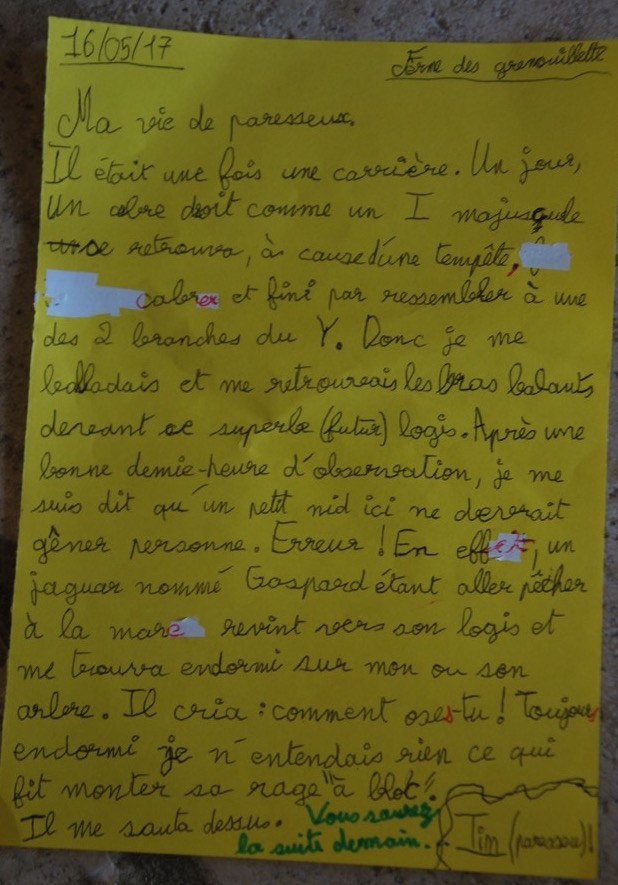 16/05/17
Ferme des grenouillette
Ma vie de paresseux.
Il était une fois une carrière. Un jour,
un abre droit comme un I majuscule
se retrouva, à cause d'une tempête,
cabrer et fini par ressembler à une
des 2 branches du Y. Donc je me
balladais et me retrouvais les bras balants
devant ce superbe (futur) logis. Après une
bonne demie-heure d'observation, je me
suis dit qu'un petit nid ici ne devrait
gêner personne. Erreur ! En effet, un
jaguar nommé Gaspard étant aller pêcher
à la mare revint vers son logis et
me trouva endormi sur mon ou son
arbre. Il cria : comment oses-tu ! Toujours
endormi je n'entendais rien ce qui
fit monter sa rage "à bloc".
Il me sauta dessu. Vous saurez
la suite demain...
Tim (paresseux)!